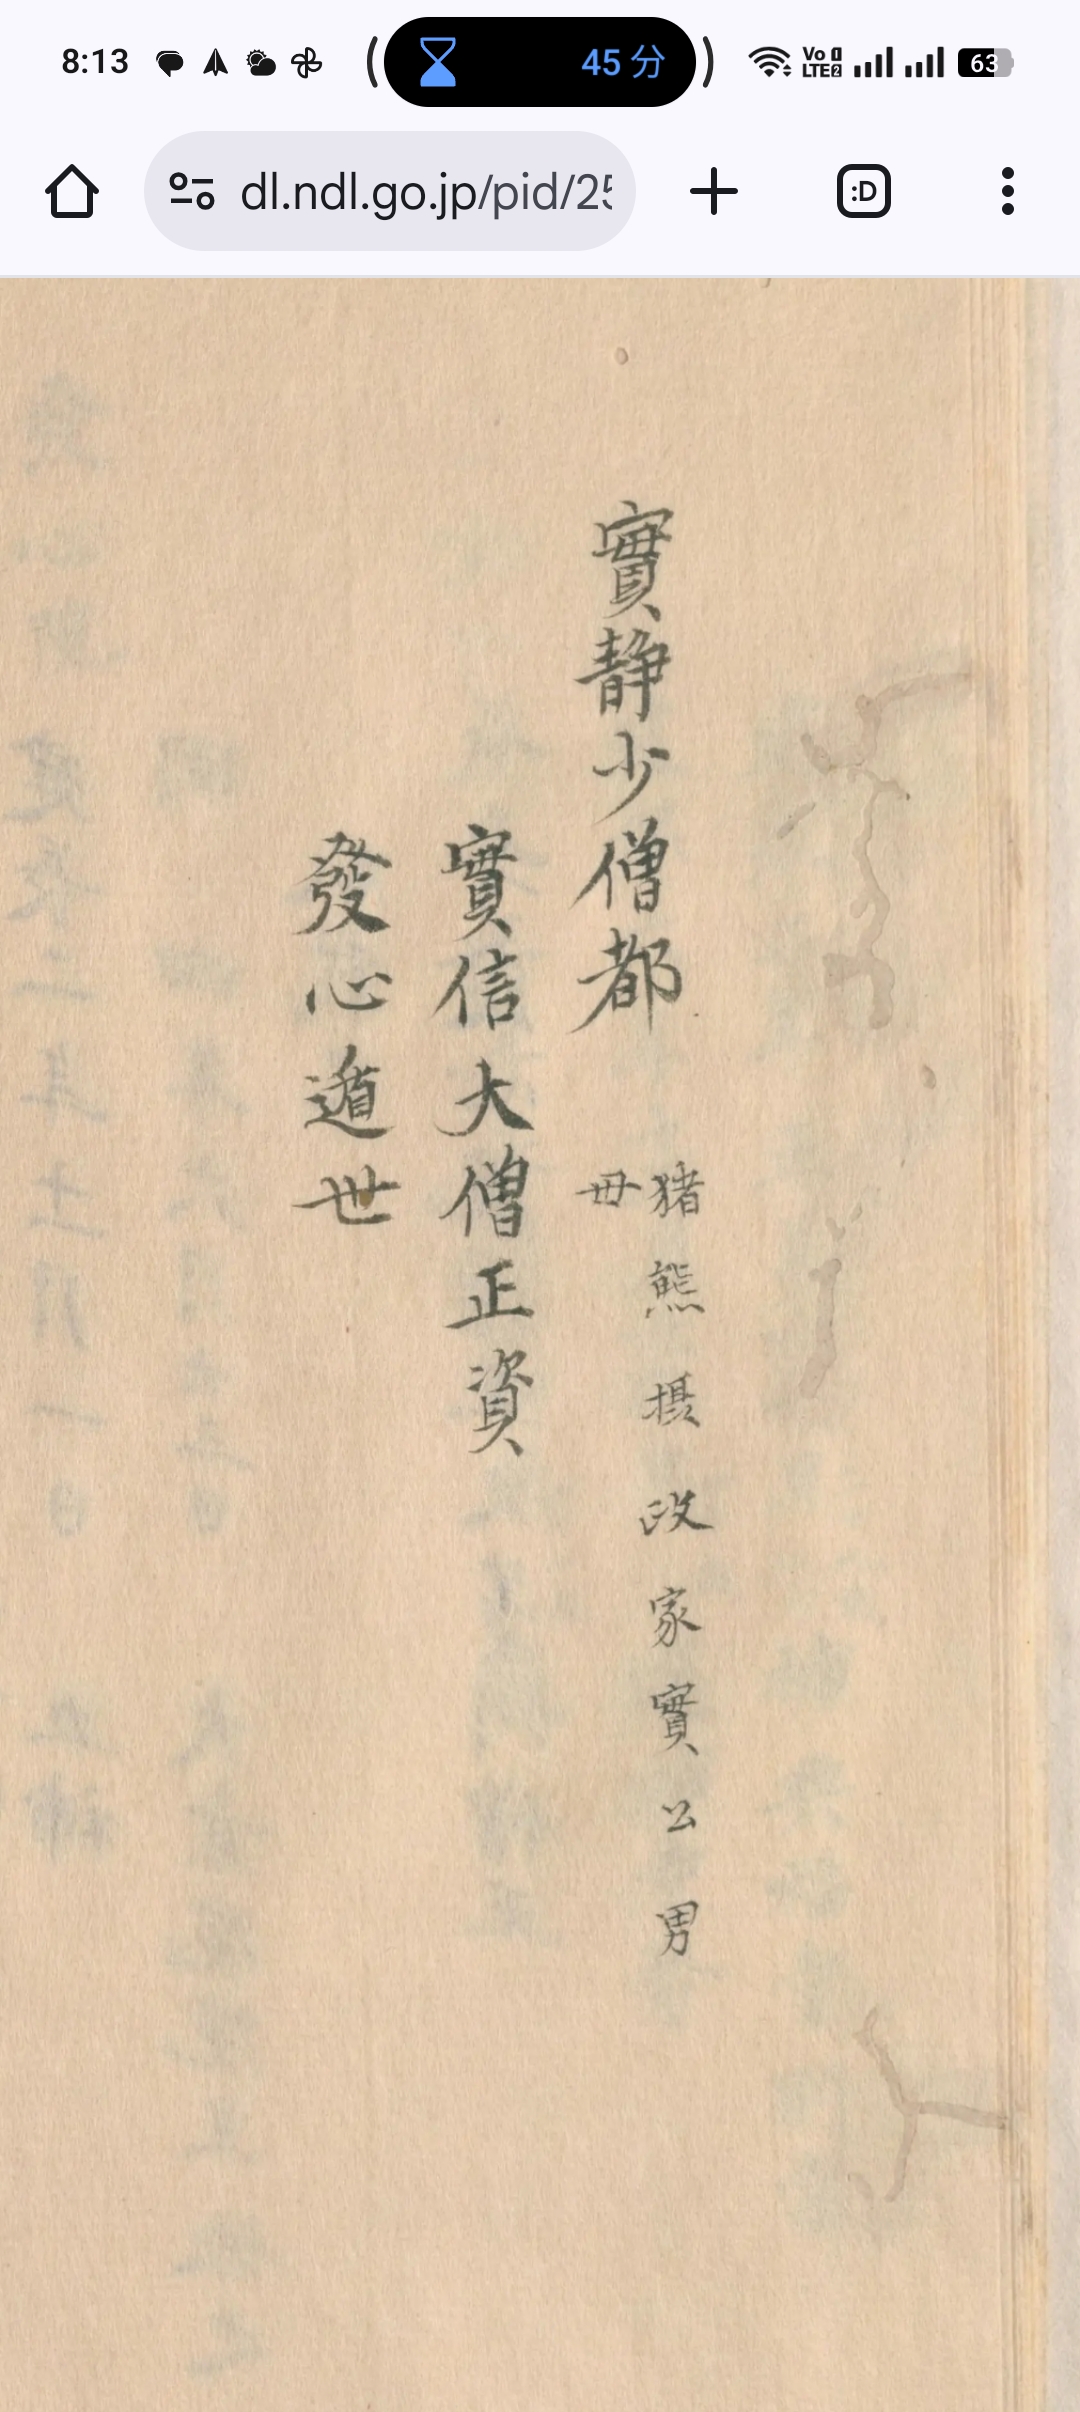 8:13
45 分
Vo 1
LTE2
63
dl.ndl.go.jp/pid/25
:D
實静少僧都
猪熊摂政家實公男
毋
實信大僧正資
發心遁世